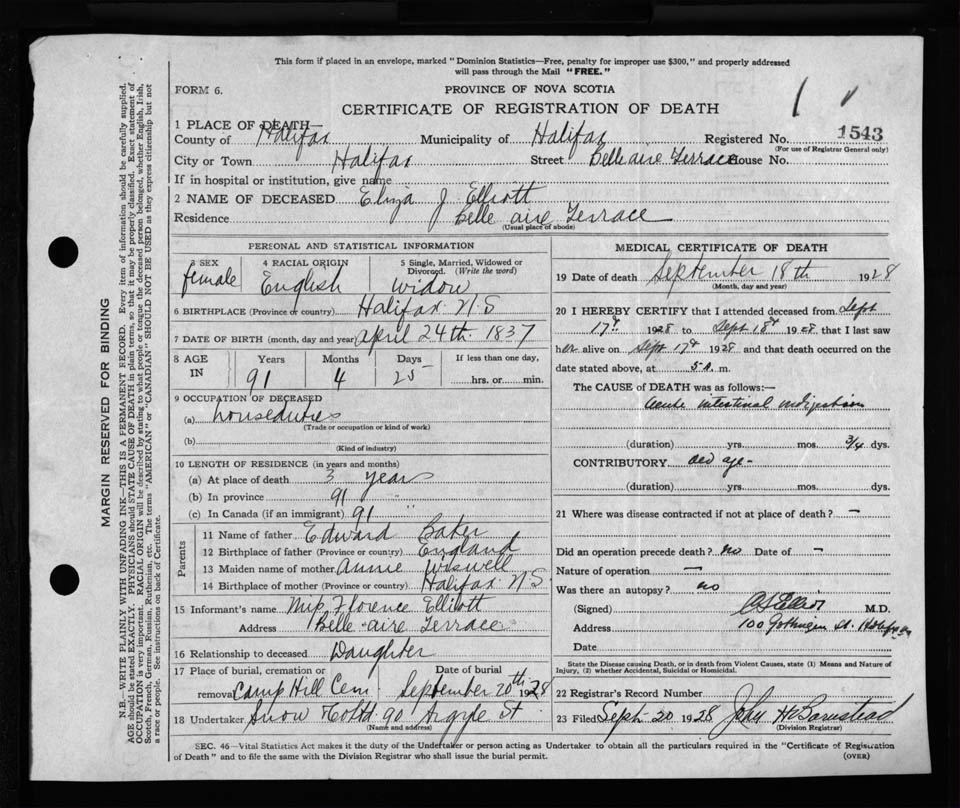 This form if placed in an envelope, marked "Dominion Statistics—Free, penalty for improper use $300," and properly addressed
will pass through the Mail "FREE."
FORM 6.
PROVINCE OF NOVA SCOTIA
CERTIFICATE OF REGISTRATION OF DEATH
1 PLACE OF DEATH—
County of Halifax Municipality of Halifax Registered No. 1543
(For use of Registrar General only)
City or Town Halifax Street Belle aire Terrace House No.
If in hospital or institution, give name
2 NAME OF DECEASED Eliza J Elliott
Residence Belle aire Terrace
(Usual place of abode)
MARGIN RESERVED FOR BINDING
N.B.—WRITE PLAINLY WITH UNFADING INK—THIS IS A PERMANENT RECORD. Every item of information should be carefully supplied.
AGE should be stated EXACTLY. PHYSICIANS should STATE CAUSE OF DEATH in plain terms, so that it may be properly classified. Exact statement of
OCCUPATION is very important. RACIAL ORIGIN will be described by stating to what people or tongue the deceased person belonged, whether English, Irish,
Scotch, French, German, Russian, Ruthenian, etc. The terms "AMERICAN" or "CANADIAN" SHOULD NOT BE USED as they express citizenship but not
a race or people. See instructions on back of Certificate.
PERSONAL AND STATISTICAL INFORMATION
3 SEX
female
4 RACIAL ORIGIN
English
5 Single, Married, Widowed or
Divorced. (Write the word)
widow
6 BIRTHPLACE (Province or country) Halifax N.S
7 DATE OF BIRTH (month, day and year) April 24th 1837
8 AGE
IN
Years
91
Months
4
Days
25
If less than one day,
hrs. or min.
9 OCCUPATION OF DECEASED
(a) houseduties
(Trade or occupation or kind of work)
(b)
(Kind of industry)
10 LENGTH OF RESIDENCE (in years and months)
(a) At place of death 3 years
(b) In province 91 "
(c) In Canada (if an immigrant) 91 "
Parents
11 Name of father Edward Baker
12 Birthplace of father (Province or country) England
13 Maiden name of mother Annie Wiswell
14 Birthplace of mother (Province or country) Halifax N.S
15 Informant's name Miss Florence Elliott
Address Belle-aire Terrace
16 Relationship to deceased Daughter
17 Place of burial, cremation or Date of burial
removal Camp Hill Cem September 20th 1928
18 Undertaker Snow 90 Argyle St
(Name and address)
MEDICAL CERTIFICATE OF DEATH
19 Date of death September 18th 1928
(Month, day and year)
20 I HEREBY CERTIFY that I attended deceased from Sept
17th 1928 to Sept 18th 1928 that I last saw
her alive on Sept 17th 1928 and that death occurred on the
date stated above, at 5 a. m.
The CAUSE of DEATH was as follows:—
acute intestinal indigestion
(duration) yrs. mos. 3/4 dys.
CONTRIBUTORY old age —
(duration) yrs. mos. dys.
21 Where was disease contracted if not at place of death? —
Did an operation precede death? no Date of —
Nature of operation —
Was there an autopsy? no
(Signed) M.D.
Address 100 Gottingen St. Halifax
Date
State the Disease causing Death, or in death from Violent Causes, state (1) Means and Nature of
Injury, (2) whether Accidental, Suicidal or Homicidal.
22 Registrar's Record Number
23 Filed Sept 20 1928 John H Barnstead
(Division Registrar)
SEC. 46—Vital Statistics Act makes it the duty of the Undertaker or person acting as Undertaker to obtain all the particulars required in the "Certificate of Registration
of Death" and to file the same with the Division Registrar who shall issue the burial permit.
(OVER)